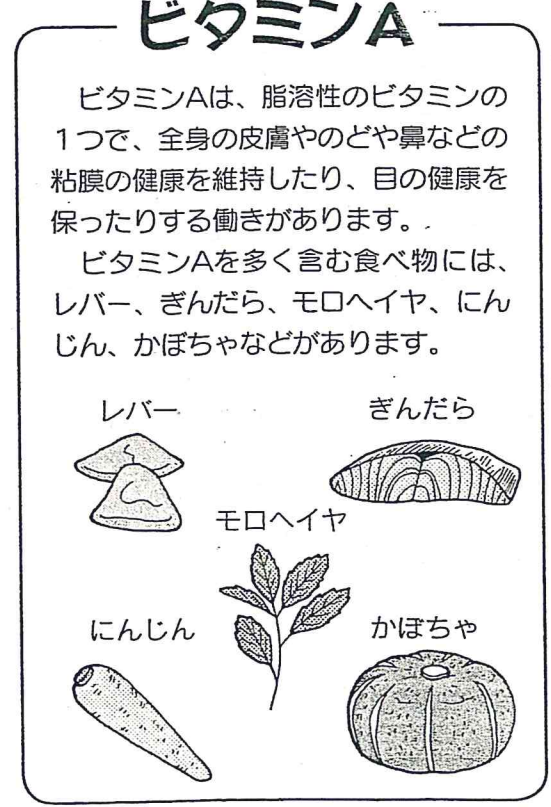 ビタミンA
ビタミンAは、脂溶性のビタミンの
1つで、全身の皮膚やのどや鼻などの
粘膜の健康を維持したり、目の健康を
保ったりする働きがあります。
ビタミンAを多く含む食べ物には、
レバー、ぎんだら、モロヘイヤ、にん
じん、かぼちゃなどがあります。
レバー
ぎんだら
モロヘイヤ
にんじん
かぼちゃ